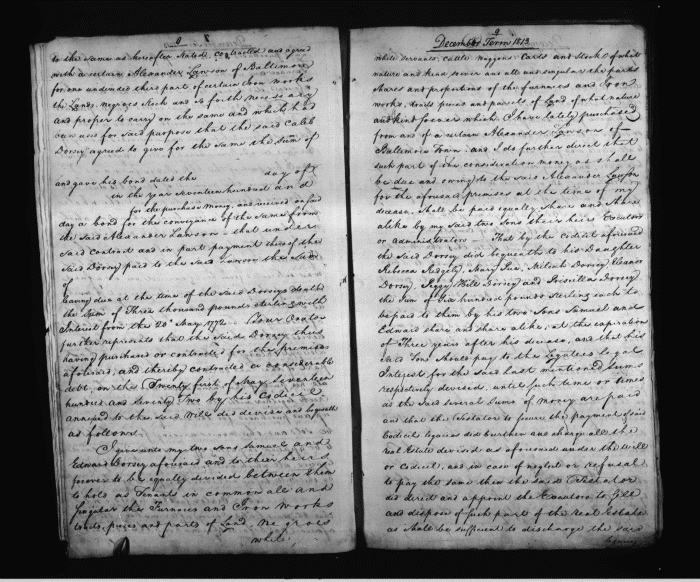 8
to the same as hereafter stated contracted and agreed
with a certain Alexander Lawson of Baltimore
for one undivided third part of certain Iron works
the Lands, Negroes Stock and so forth necessary
and proper to carry on the same and which had
been used for said purpose that the said Caleb
Dorsey agreed to give for the same the Sum of
and gave his bond dated the day of
in the year Seventeen hundred and
for the purchase money, and received on said
day a bond for the conveyance of the same from
the said Alexander Lawson that under
said contract and in part payment thereof the
Said Dorsey paid to the said Lawson the sum
of
leaving due at the time of the said Dorseys death
the Sum of Three thousand pounds sterling with
Interest from the 20th May 1772. Your Orator
further represents that the said Dorsey thus
having purchased or contracted for the premises
aforesaid, and thereby contracted a considerable
debt, on the Twenty first of May Seventeen
hundred and Seventy Two by his Codicil
annexed to the said Will did devise and bequeath
as follows
I give unto my two sons Samuel and
Edward Dorsey aforesaid and to their heirs
forever to be equally divided between them
to hold as Tenants in common all and
Singular the Furnaces and Iron works
tracts, pieces and parts of Land Negroes
while
9
December Term 1813
white servants, cattle Waggons Carts and Stock of what
nature and kind soever and all and singular the parts
shares and proportions of the furnaces and Iron
works, tracts pieces and parcels of Land of what nature
and kind soever which I have lately purchased
from and of a certain Alexander Lawson of
Baltimore Town: and I do further direct that
such part of the consideration money as shall
be due and owing to the said Alexander Lawson
for the aforesaid premises at the time of my
decease, shall be paid equally share and share
alike by my said two sons their heirs Executors
or administrators That by the codicil aforesaid
the said Dorsey did bequeath to his Daughters
Rebecca Ridgely, Mary Pue, Milcah Dorsey Eleanor
Dorsey, Peggy Hill Dorsey and Priscilla Dorsey
the Sum of Six hundred pounds sterling each to
be paid to them by his two Sons Samuel and
Edward share and share alike, at the expiration
of Three years after his decease, and that his
said Sons should pay to the legatees
Interest for the said last mentioned sums
respectively devised, until such time or times
as the said several Sums of money are paid
and that the Testator to secure the payment of said
Codicil legacies did burthen and charge all the
real Estate devised as aforesaid under the will
or Codicil, and in case of neglect or refusal
to pay the same then the said Testator
did direct and appoint the Executors to Sell
and dispose of such part of the real Estate
as shall be sufficient to discharge the said